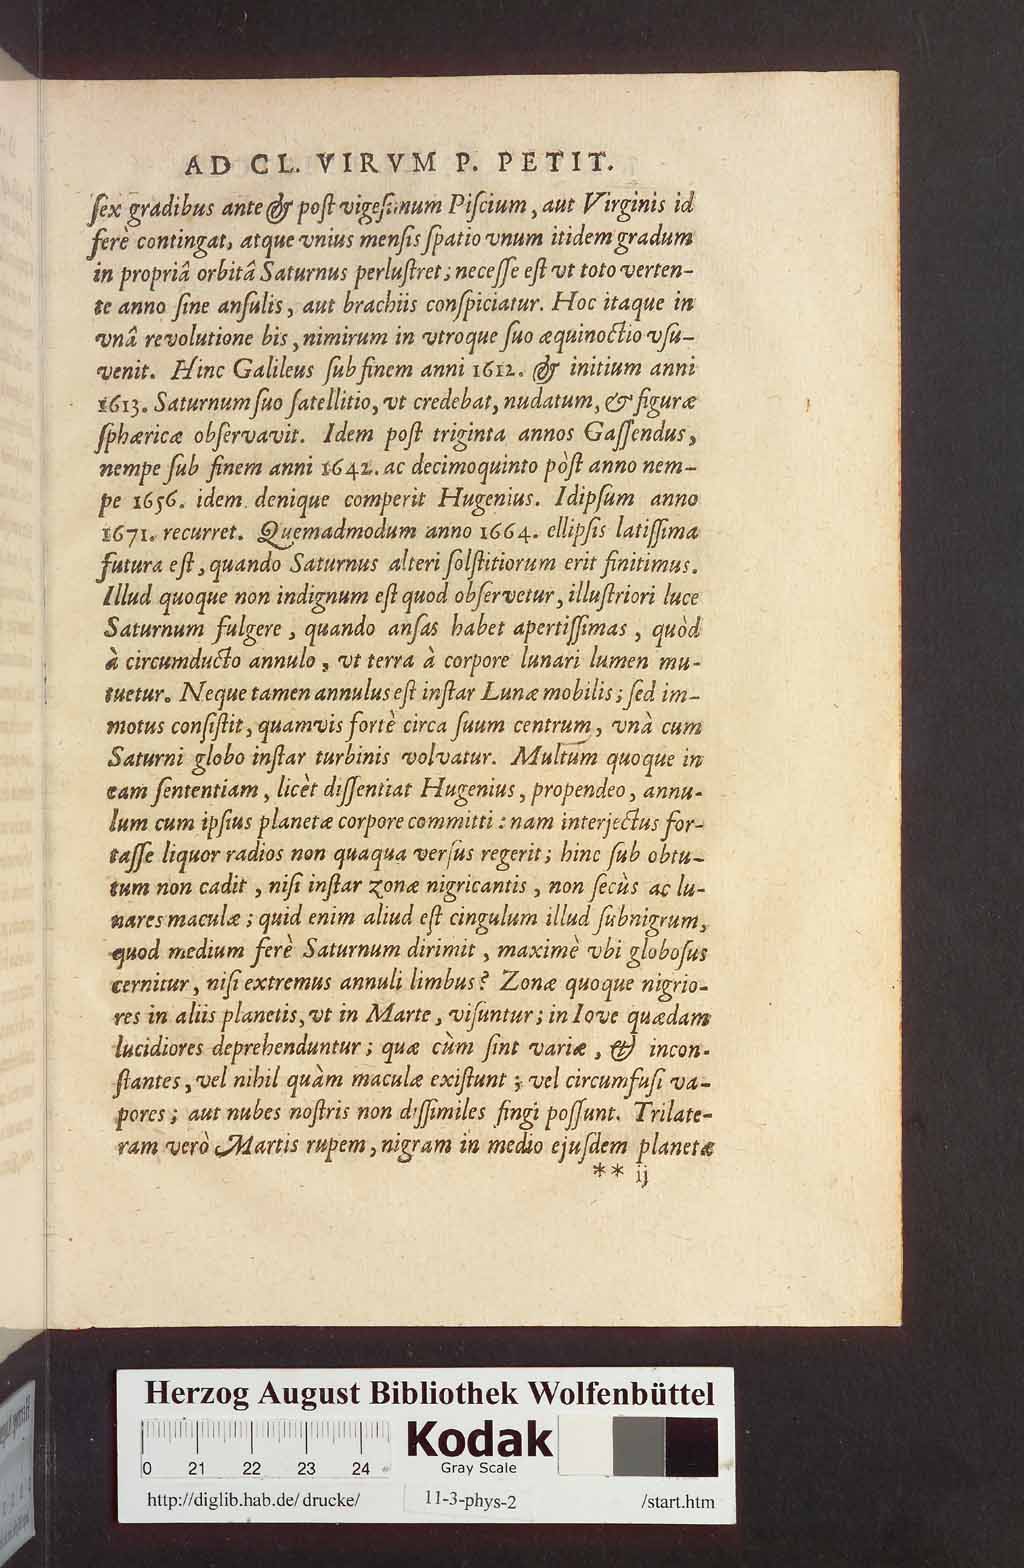 AD CL. VIRVM P. PETIT.
ſex gradibus ante & poſt vigeſimum Piſcium, aut Virginis id
ferè contingat, atque vnius menſis ſpatio vnum itidem gradum
in propriâ orbitâ Saturnus perluſtret; neceſſe eſt vt toto verten-
te anno ſine anſulis, aut brachiis conſpiciatur. Hoc itaque in
vnâ revolutione bis, nimirum in vtroque ſuo æquinoctio vſu-
venit. Hinc Galileus ſub finem anni 1612. & initium anni
1613. Saturnum ſuo ſatellitio, vt credebat, nudatum, & figuræ
ſphæricæ obſervavit. Idem poſt triginta annos Gaſſendus,
nempe ſub finem anni 1642. ac decimoquinto pòſt anno nem-
pe 1656. idem denique comperit Hugenius. Idipſum anno
1671. recurret. Quemadmodum anno 1664. ellipſis latiſſima
futura eſt, quando Saturnus alteri ſolſtitiorum erit finitimus.
Illud quoque non indignum eſt quod obſervetur, illuſtriori luce
Saturnum fulgere, quando anſas habet apertiſſimas, quòd
à circumducto annulo, vt terra à corpore lunari lumen mu-
tuetur. Neque tamen annulus eſt inſtar Lunæ mobilis; ſed im-
motus conſiſtit, quamvis fortè circa ſuum centrum, vnà cum
Saturni globo inſtar turbinis volvatur. Multum quoque in
eam ſententiam, licèt diſſentiat Hugenius, propendeo, annu-
lum cum ipſius planetæ corpore committi: nam interjectus for-
taſſe liquor radios non quaqua verſus regerit; hinc ſub obtu-
tum non cadit, niſi inſtar zonæ nigricantis, non ſecùs ac lu-
nares maculæ; quid enim aliud eſt cingulum illud ſubnigrum,
quod medium ferè Saturnum dirimit, maximè vbi globoſus
cernitur, niſi extremus annuli limbus? Zonæ quoque nigrio-
res in aliis planetis, vt in Marte, viſuntur; in Iove quædam
lucidiores deprehenduntur; quæ cùm ſint variæ, & incon-
ſtantes, vel nihil quàm maculæ exiſtunt; vel circumfuſi va-
pores; aut nubes noſtris non diſſimiles fingi poſſunt. Trilate-
ram verò Martis rupem, nigram in medio ejuſdem planetæ
** ij
Herzog August Bibliothek Wolfenbüttel
0 21 22 23 24
Kodak
Gray Scale
http://diglib.hab.de/drucke/ 11-3-phys-2 /start.htm